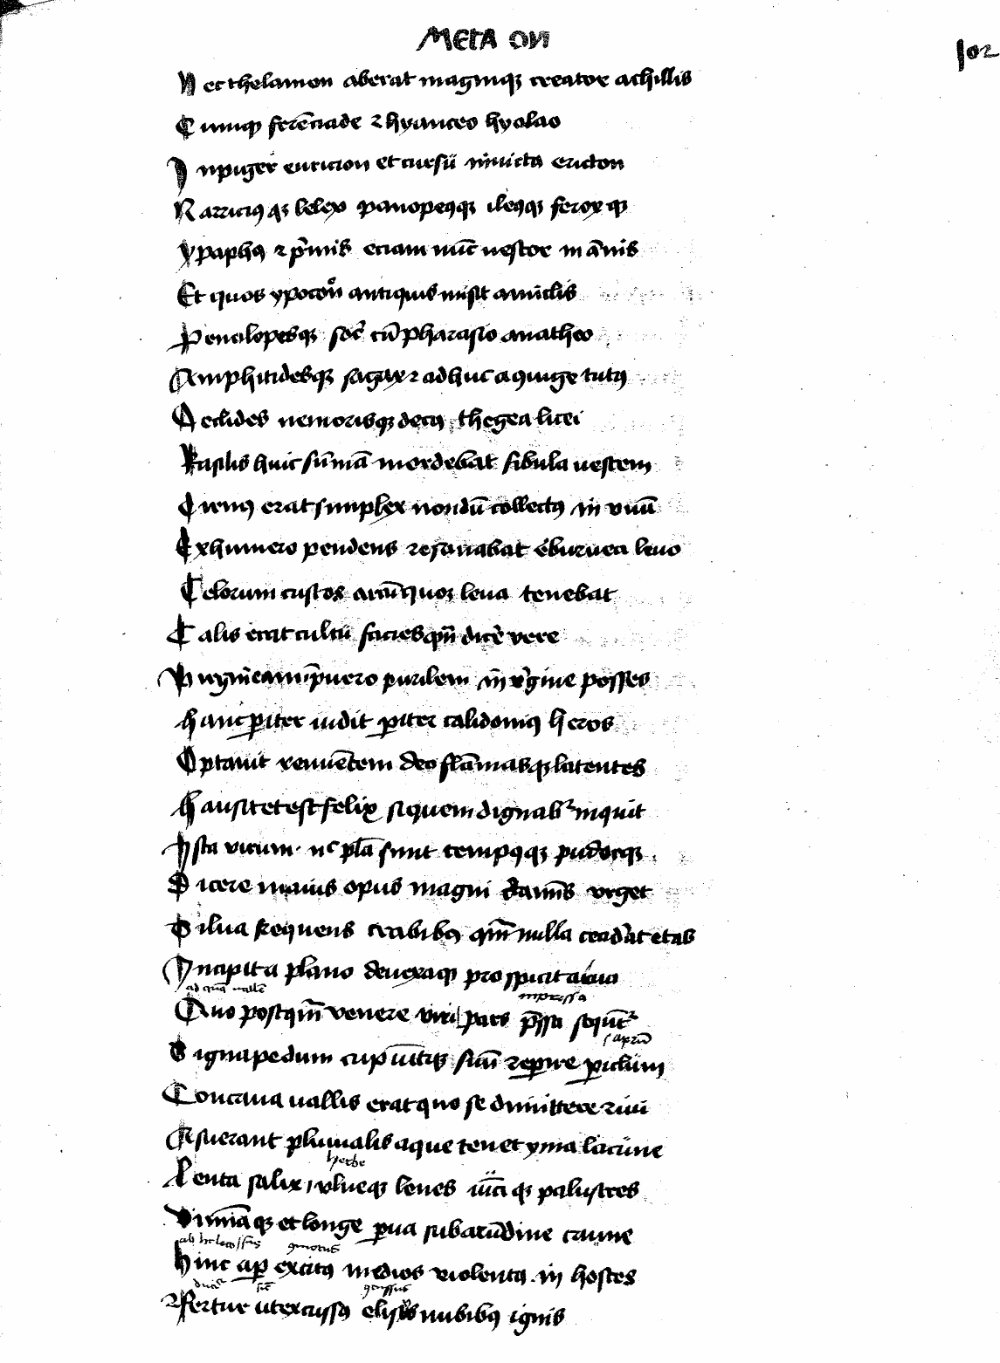 META OVI
102
Nec thelamon aberat magniqz creator achillis
Cumqz ferēciade ⁊ hyanteo hyolao
Inpiger euricion et cursū inuicta ericton
Narriciꝰqz lelex panopeꝰqz ileꝰqz feroxqz
ypaphꝰ ⁊ p̄mis eciam nūc nestor in ānis
Et quos ypocoon antiquis misit amiclis
Penelopesqz socer cū pharasio anatheo
Amphitidesqz sagax ⁊ adhuc a quige tutꝰ
Aeclides nemorisqz decꝰ thegea licei
Rasilis huic sūmā mordebat fibula uestem
Crinꝰ erat simplex nondū collectꝰ in unū
Ex humero pendens resonabat eburnea leuo
Telorum custos arcū quoqz leua tenebat
Talis erat cultū facies qm̄ dicere vere
Virgineam ī puero puerilem in virgine posses
hanc pariter uidit pariter calidoniꝰ heros
Optauit renuētem deo flāmasqz latentes
hausit et est felix siquem dignabitur inquit
Ista virum nc̄ plā sunt tempꝰqz pudorqz
Dicere maius opus magni certaminis vrget
Silua frequens trabibꝰ qm̄ nulla ceciderat etas
Incipit a plano deuexaqz prospicit arua
ad quā uallē impressa
Quo postqm̄ venere viri pars p̄ssa sequntur
s. aprū
Signa pedum cupiūtqz suū reperire periclum
Concaua uallis erat quo se dimittere riui
Asuerant pluuialis aque tenet yma lacune
herbe
Lenta salix vlueqz leues iūciqz palustres
Viminaqz et longe parua sub arūdine canne
Hinc aper excitꝰ medios violentꝰ in hostes
Fertur ut excussꝰ elisis nubibꝰ ignis